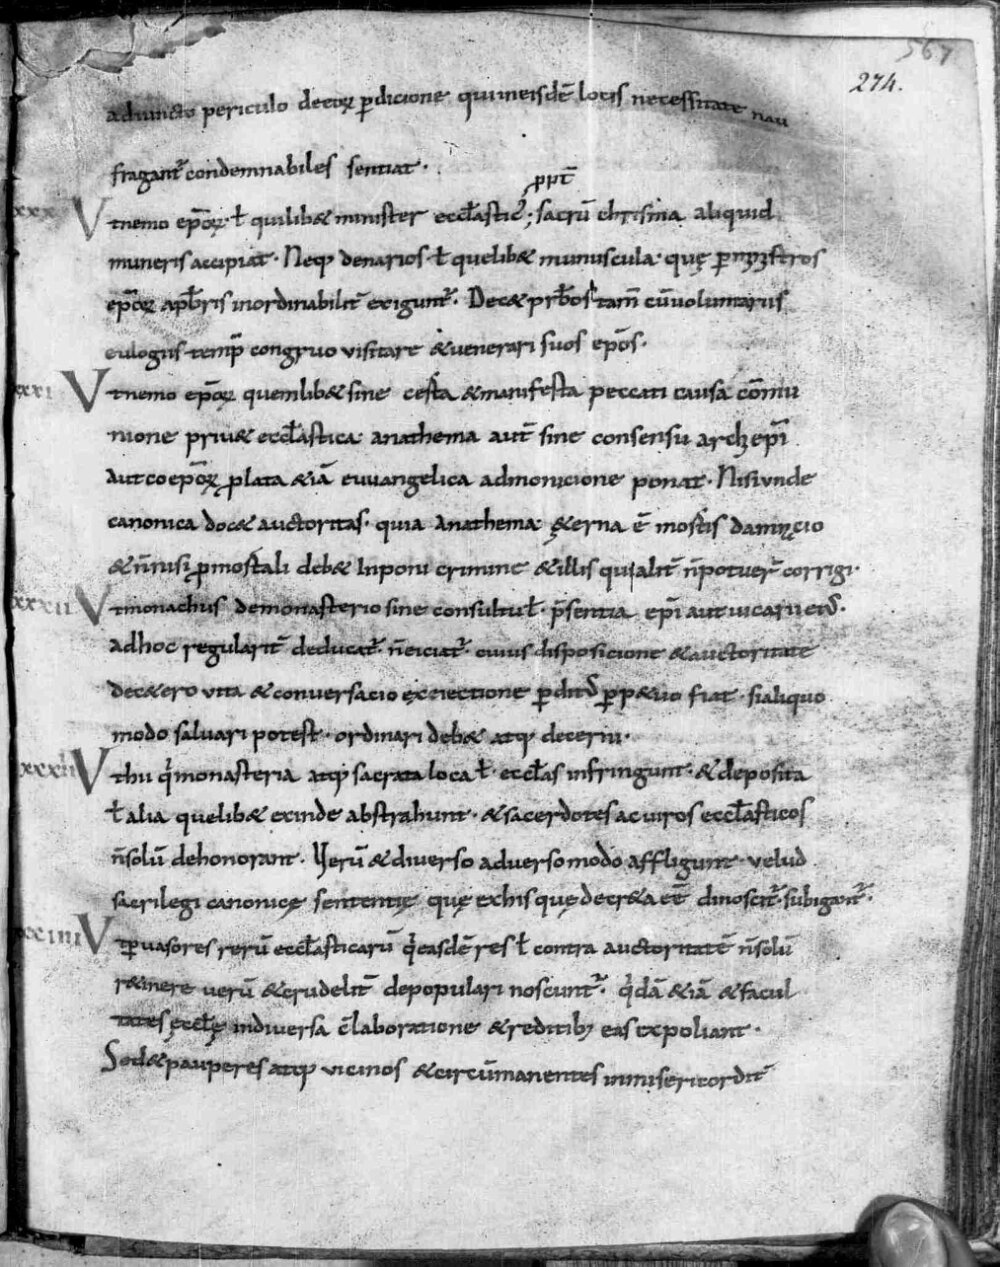 567
274.
adiuncto periculo deeoꝝ ꝑdicione qui ineisdē locis necessitate nau
fragant᷑ condemnabiles sentiat·
ꝓpt̄
xxx Vt nemo ep̄oꝝ·ł quilib& minister eccl̄astic᷑; sacrū chrisma aliquid
muneris accipiat· Neq; denarios·ł quelib& munuscula· quę ꝑ
ep̄oꝝ apr̄bris inordinabilit̄ exigunt᷑. Dec& pr̄bos tam̄ cū voluntariis
eulogiis temp̄ congruo visitare &venerari suos ep̄os·
xxxi Vt nemo ep̄oꝝ quemlib& sine certa &manifesta peccati causa cōmu
nione priu& eccl̄astica· anathema aut̄ sine consensu archiep̄i
Aut coep̄oꝝ ꝓlata &iā euuangelica admonicione ponat· Nisi vnde
canonica doc& auctoritas· quia Anathema· ęterna ē mortis damnacio
&n̄ nisi ꝓ mortali deb& Inponi crimine &illis qui alit̄ n̄ potuer̄ corrigi·
xxxii Vt monachus de monasterio sine consultu ł· p̄sentia ep̄i aut uicarii eiꝰ·
Ad hoc regularit̄ deducat᷑· n̄ eiciat᷑· cuius disposicione &auctoritate
dec&ero vita &conversacio exeiectione ꝑditꝰ ꝑp&uo fiat· si aliquo
modo saluari potest· ordinari deb& atq; decerni·
xxxiii Vt hii q̇ monasteria atq; sacrata loca ł· eccl̄as infringunt· &deposita
ł alia quelib& exinde abstrahunt· &sacerdotes ac viros eccl̄asticos
n̄ solū dehonorant. Verū &diverso adverso modo affligunt· velud
sacrilegi canonicę sententię quę ex his quę decr&a eē dinoscit᷑·subigant᷑·
xxxiiii Vt ꝑvasores rerū eccl̄asticarū q̇ easdē res ł contra auctoritatē n̄ solū
r&inere verū &crudelit̄ depopulari noscunt᷑· q̇dā &iā &facul
tates ęccl̄ę in diversa c̄laboratione &reditib; eas expoliant·
Sed &pauperes atq; vicinos &circūmanentes inmisericordit̄